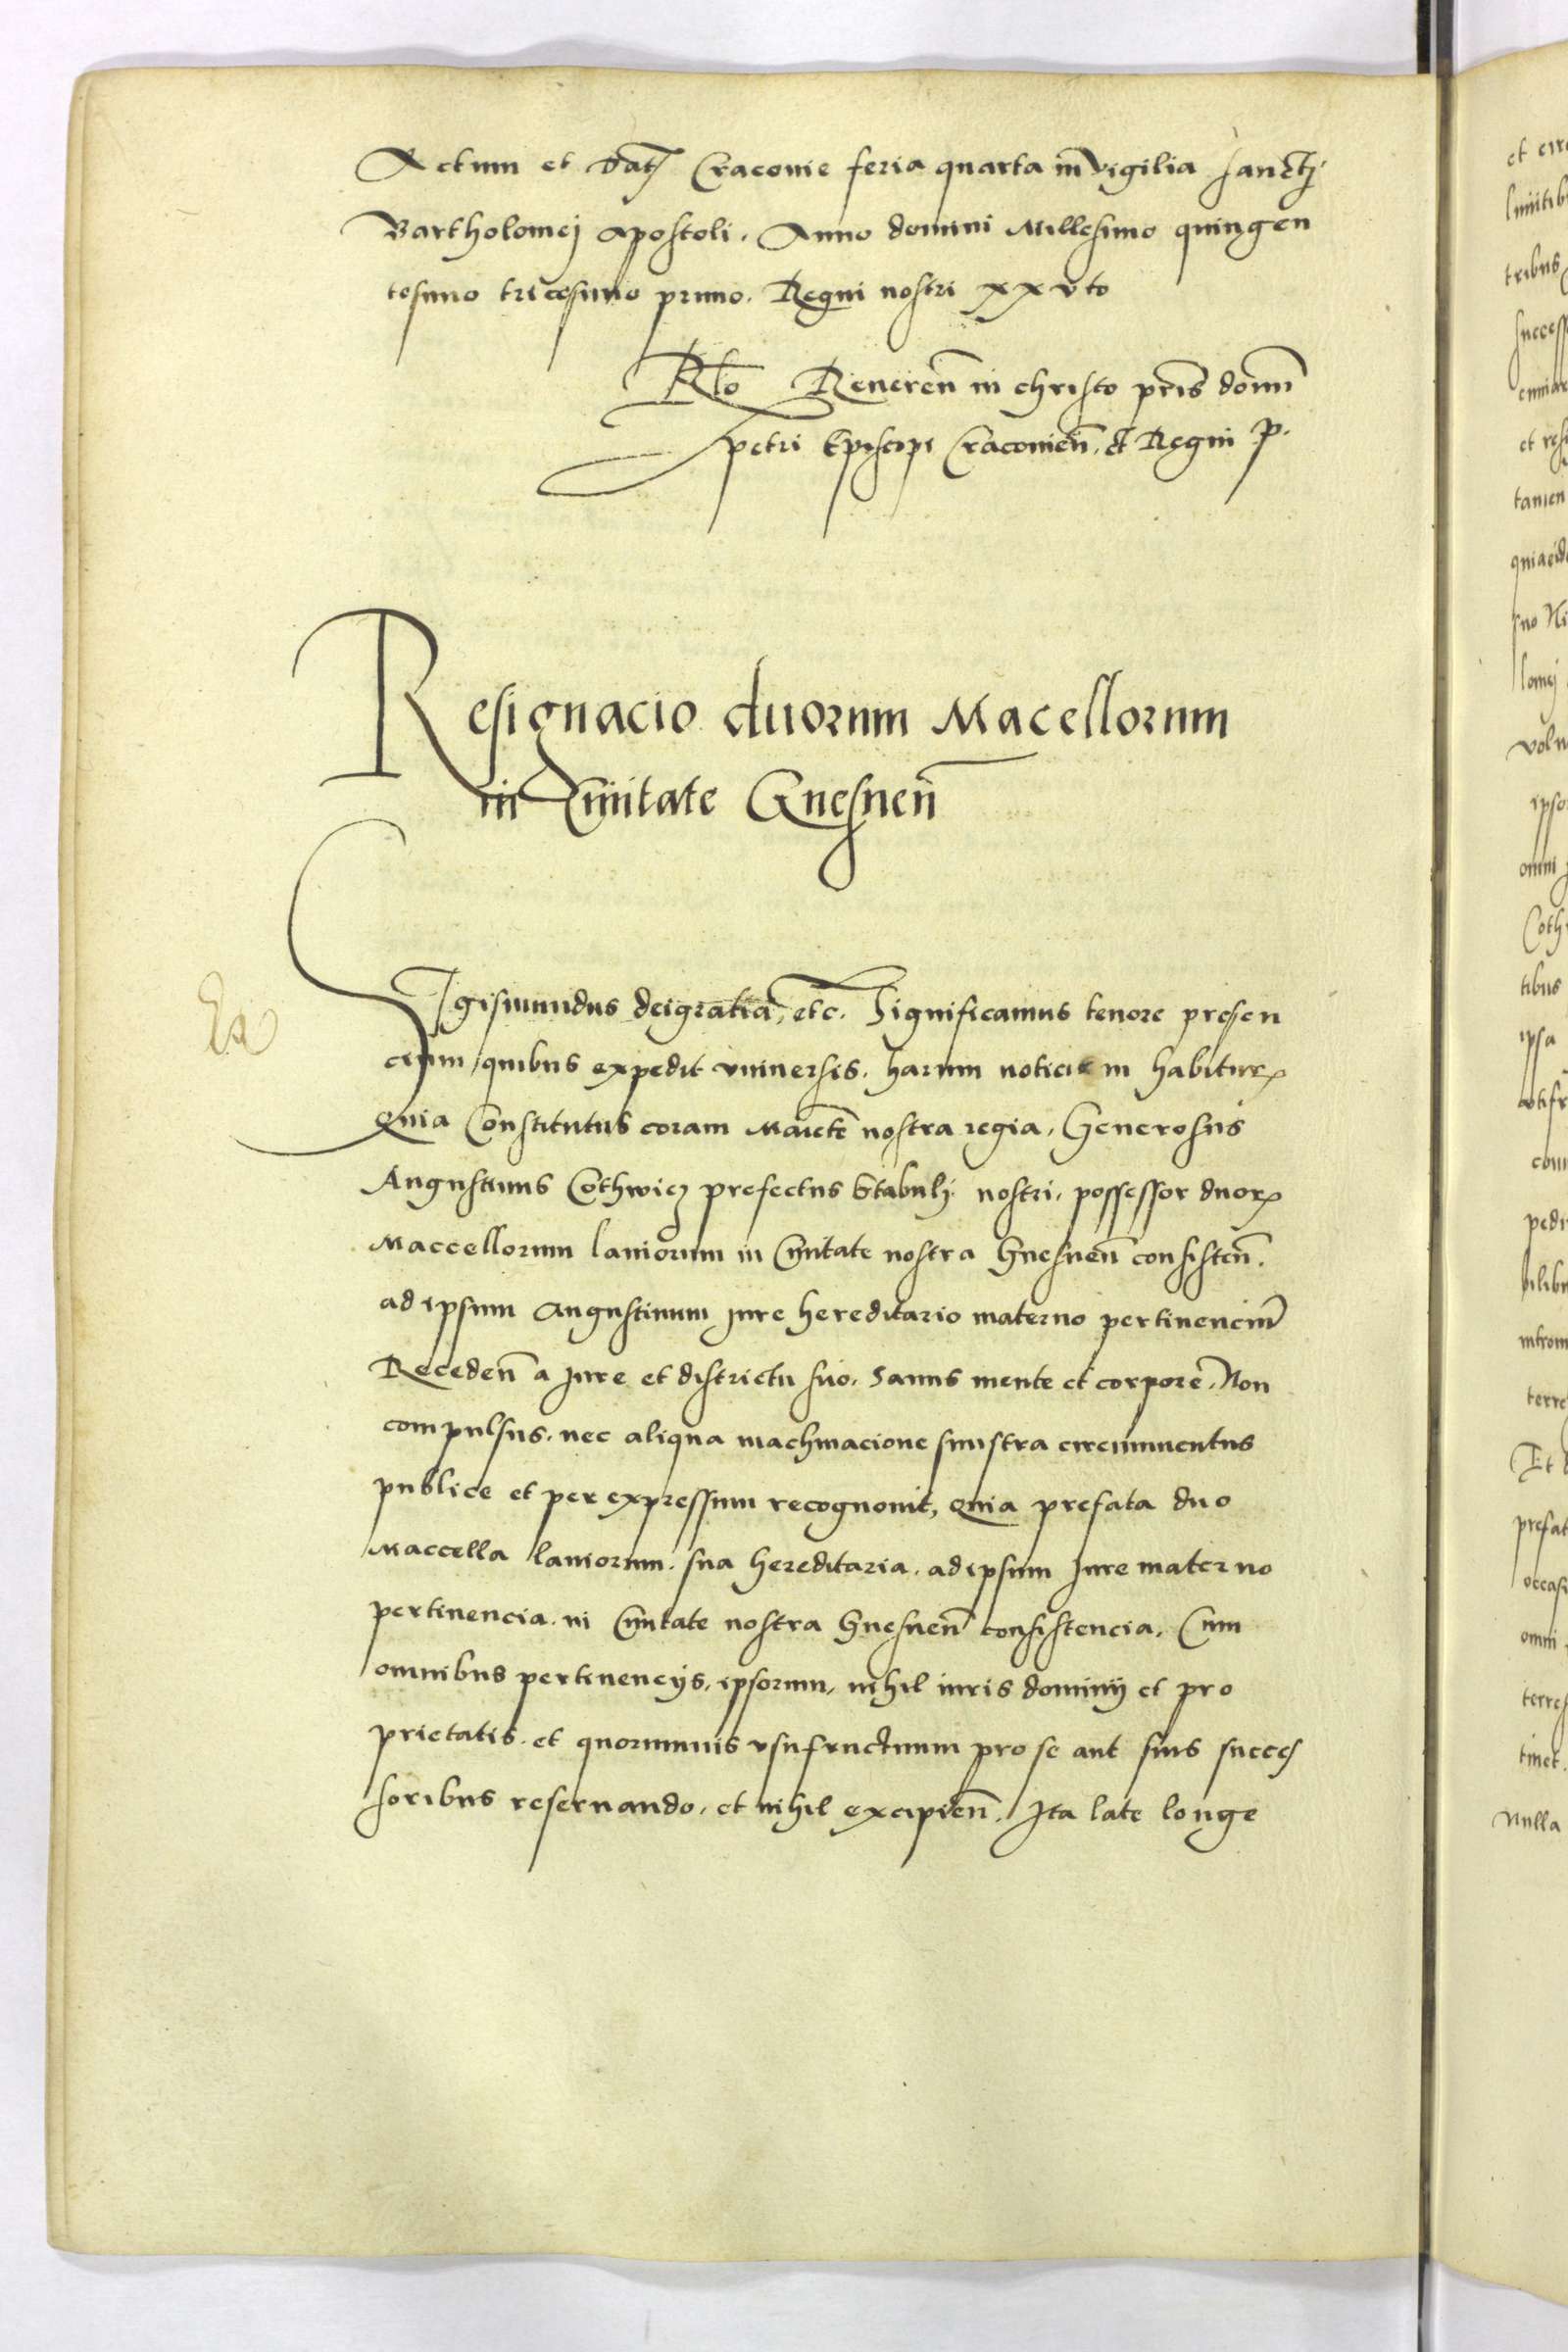 Actum et dat Cracovie feria quarta in vigilia sanctj
Bartholomej apostoli. Anno domini Millesimo quingen
tesimo tricesimo primo. Regni nostri xxvto
Rlo Reueren in christo pris domi
petri Episcopi Cracouien, et Regni P.
Resignacio duorum Macellorum
in Ciuitate Gnesnen
Sigismundus dei gratia, etc. Significamus tenore presen
cium quibus expedit vniuersis. harum noticiam habitur
Quia Constitutus coram Maiete nostra regia, Generosus
Augustinus Cothwicz prefectus stabulj nostri, possessor duor
Maccellorum laniorum in Ciuitate nostra Gnesnen consisten.
ad ipsum Augustinum Jure hereditario materno pertinenciu
Receden a Jure et districtu suo. Sanus mente et corpore, Non
compulsus. nec aliqua machinacione sinistra circumuentus
publice et per expressum recognouit, Quia prefata duo
Maccella laniorum. sua hereditaria. ad ipsum Jure materno
pertinencia. in Ciuitate nostra Gnesnen consistencia, Cum
omnibus pertinencijs, ipsorum, nihil iuris dominij et pro
prietatis. et quorumuis vsufructuum pro se aut suis succes
soribus reseruando, et nihil excipien. Ita late longe
et circ
tribus
success
tamen
lomej
ipso
omni
Coth
tibus
ipsa
introm
terre
Et
prefat
occasi
omni
terres
tinet.
Nulla